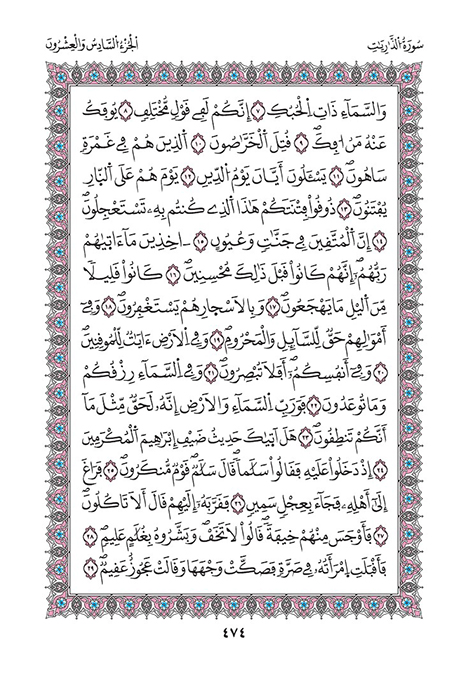 سُورَةُ الذَّارِيَٰتِ
الْجُزْءُ السَّادِسُ وَالْعِشْرُونَ
وَالسَّمَآءِ ذَاتِ الْحُبُكِ ٧ إِنَّكُمْ لَفِے قَوْلٖ مُّخْتَلِفٖ ٨ يُوفَكُ
عَنْهُ مَنُ ا۟فِكَ ٩ قُتِلَ الْخَرَّٰصُونَ ١٠ الذِينَ هُمْ فِے غَمْرَةٖ
سَاهُونَ ١١ يَسْـَٔلُونَ أَيَّانَ يَوْمُ الدِّينِ ١٢ يَوْمَ هُمْ عَلَي النّ۪ارِ
يُفْتَنُونَ ١٣ ذُوقُواْ فِتْنَتَكُمْ هَٰذَا الذِے كُنتُم بِهِۦ تَسْتَعْجِلُونَ
١٤ إِنَّ الْمُتَّقِينَ فِے جَنَّٰتٖ وَعُيُونٍ ١٥ ـاخِذِينَ مَآ ءَات۪يٰهُمْ
رَبُّهُمُۥٓ إِنَّهُمْ كَانُواْ قَبْلَ ذَٰلِكَ مُحْسِنِينَ ١٦ كَانُواْ قَلِيلٗا
مِّنَ اَليْلِ مَا يَهْجَعُونَ ١٧ وَبِالَاسْح۪ارِ هُمْ يَسْتَغْفِرُونَ ١٨ وَفِےٓ
أَمْوَٰلِهِمْ حَقّٞ لِّلسَّآئِلِ وَالْمَحْرُومِ ١٩ وَفِے اِلَارْضِ ءَايَٰتٞ لِّلْمُوقِنِينَ
٢٠ وَفِےٓ أَنفُسِكُمُۥٓ أَفَلَا تُبْصِرُونَ ٢١ وَفِے السَّمَآءِ رِزْقُكُمْ
وَمَا تُوعَدُونَ ٢٢ فَوَرَبِّ السَّمَآءِ وَالَارْضِ إِنَّهُۥ لَحَقّٞ مِّثْلَ مَآ
أَنَّكُمْ تَنطِقُونَ ٢٣ هَلَ اَت۪يٰكَ حَدِيثُ ضَيْفِ إِبْرَٰهِيمَ الْمُكْرَمِينَ
٢٤ إِذْ دَخَلُواْ عَلَيْهِ فَقَالُواْ سَلَٰماٗ قَالَ سَلَٰمٞ قَوْمٞ مُّنكَرُونَ ٢٥ فَرَاغَ
إِلَيٰٓ أَهْلِهِۦ فَجَآءَ بِعِجْلٖ سَمِينٖ ٢٦ فَقَرَّبَهُۥٓ إِلَيْهِمْ قَالَ أَلَا تَاكُلُونَ
٢٧ فَأَوْجَسَ مِنْهُمْ خِيفَةٗ قَالُواْ لَا تَخَفْ وَبَشَّرُوهُ بِغُلَٰمٍ عَلِيمٖ ٢٨
فَأَقْبَلَتِ اِمْرَأَتُهُۥ فِے صَرَّةٖ فَصَكَّتْ وَجْهَهَا وَقَالَتْ عَجُوزٌ عَقِيمٞ ٢٩
٤٧٤